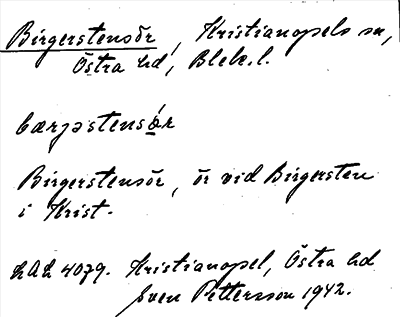 Birgerstensör, Kristianopels sn,
Östra hd, Blek. l.
bærjəstensór
Birgerstensör, ör vid Birgersten
i Krist.
LAL 4079. Kristianopel, Östra hd
Sven Pettersson 1942.